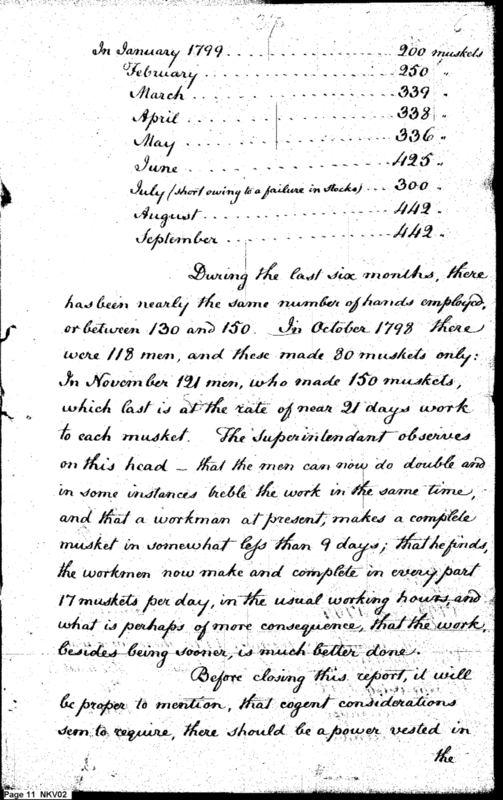 6
In January 1799 . . . . . . . . . . . . . . . . . . . . 200 muskets
February . . . . . . . . . . . . . . . . . . . . 250 "
March . . . . . . . . . . . . . . . . . . . . 339 "
April . . . . . . . . . . . . . . . . . . . . 338 "
May . . . . . . . . . . . . . . . . . . . . 336 "
June . . . . . . . . . . . . . . . . . . . . 425 "
July (short owing to a failure in stocks) . . . 300 "
August . . . . . . . . . . . . . . . . . . . . 442 "
September . . . . . . . . . . . . . . . . . . . . 442 "
During the last six months, there
has been nearly the same number of hands employed,
or between 130 and 150. In October 1798 there
were 118 men, and these made 80 muskets only:
In November 121 men, who made 150 muskets,
which last is at the rate of near 21 days work
to each musket. The Superintendant observes
on this head – that the men can now do double and
in some instances treble the work in the same time,
and that a workman at present, makes a complete
musket in somewhat less than 9 days; that he finds,
the workmen now make and complete in every part
17 muskets per day, in the usual working hours, and
what is perhaps of more consequence, that the work,
besides being sooner, is much better done.
Before closing this report, it will
be proper to mention, that cogent considerations
seem to require, there should be a power vested in
the
Page 11 NKV02